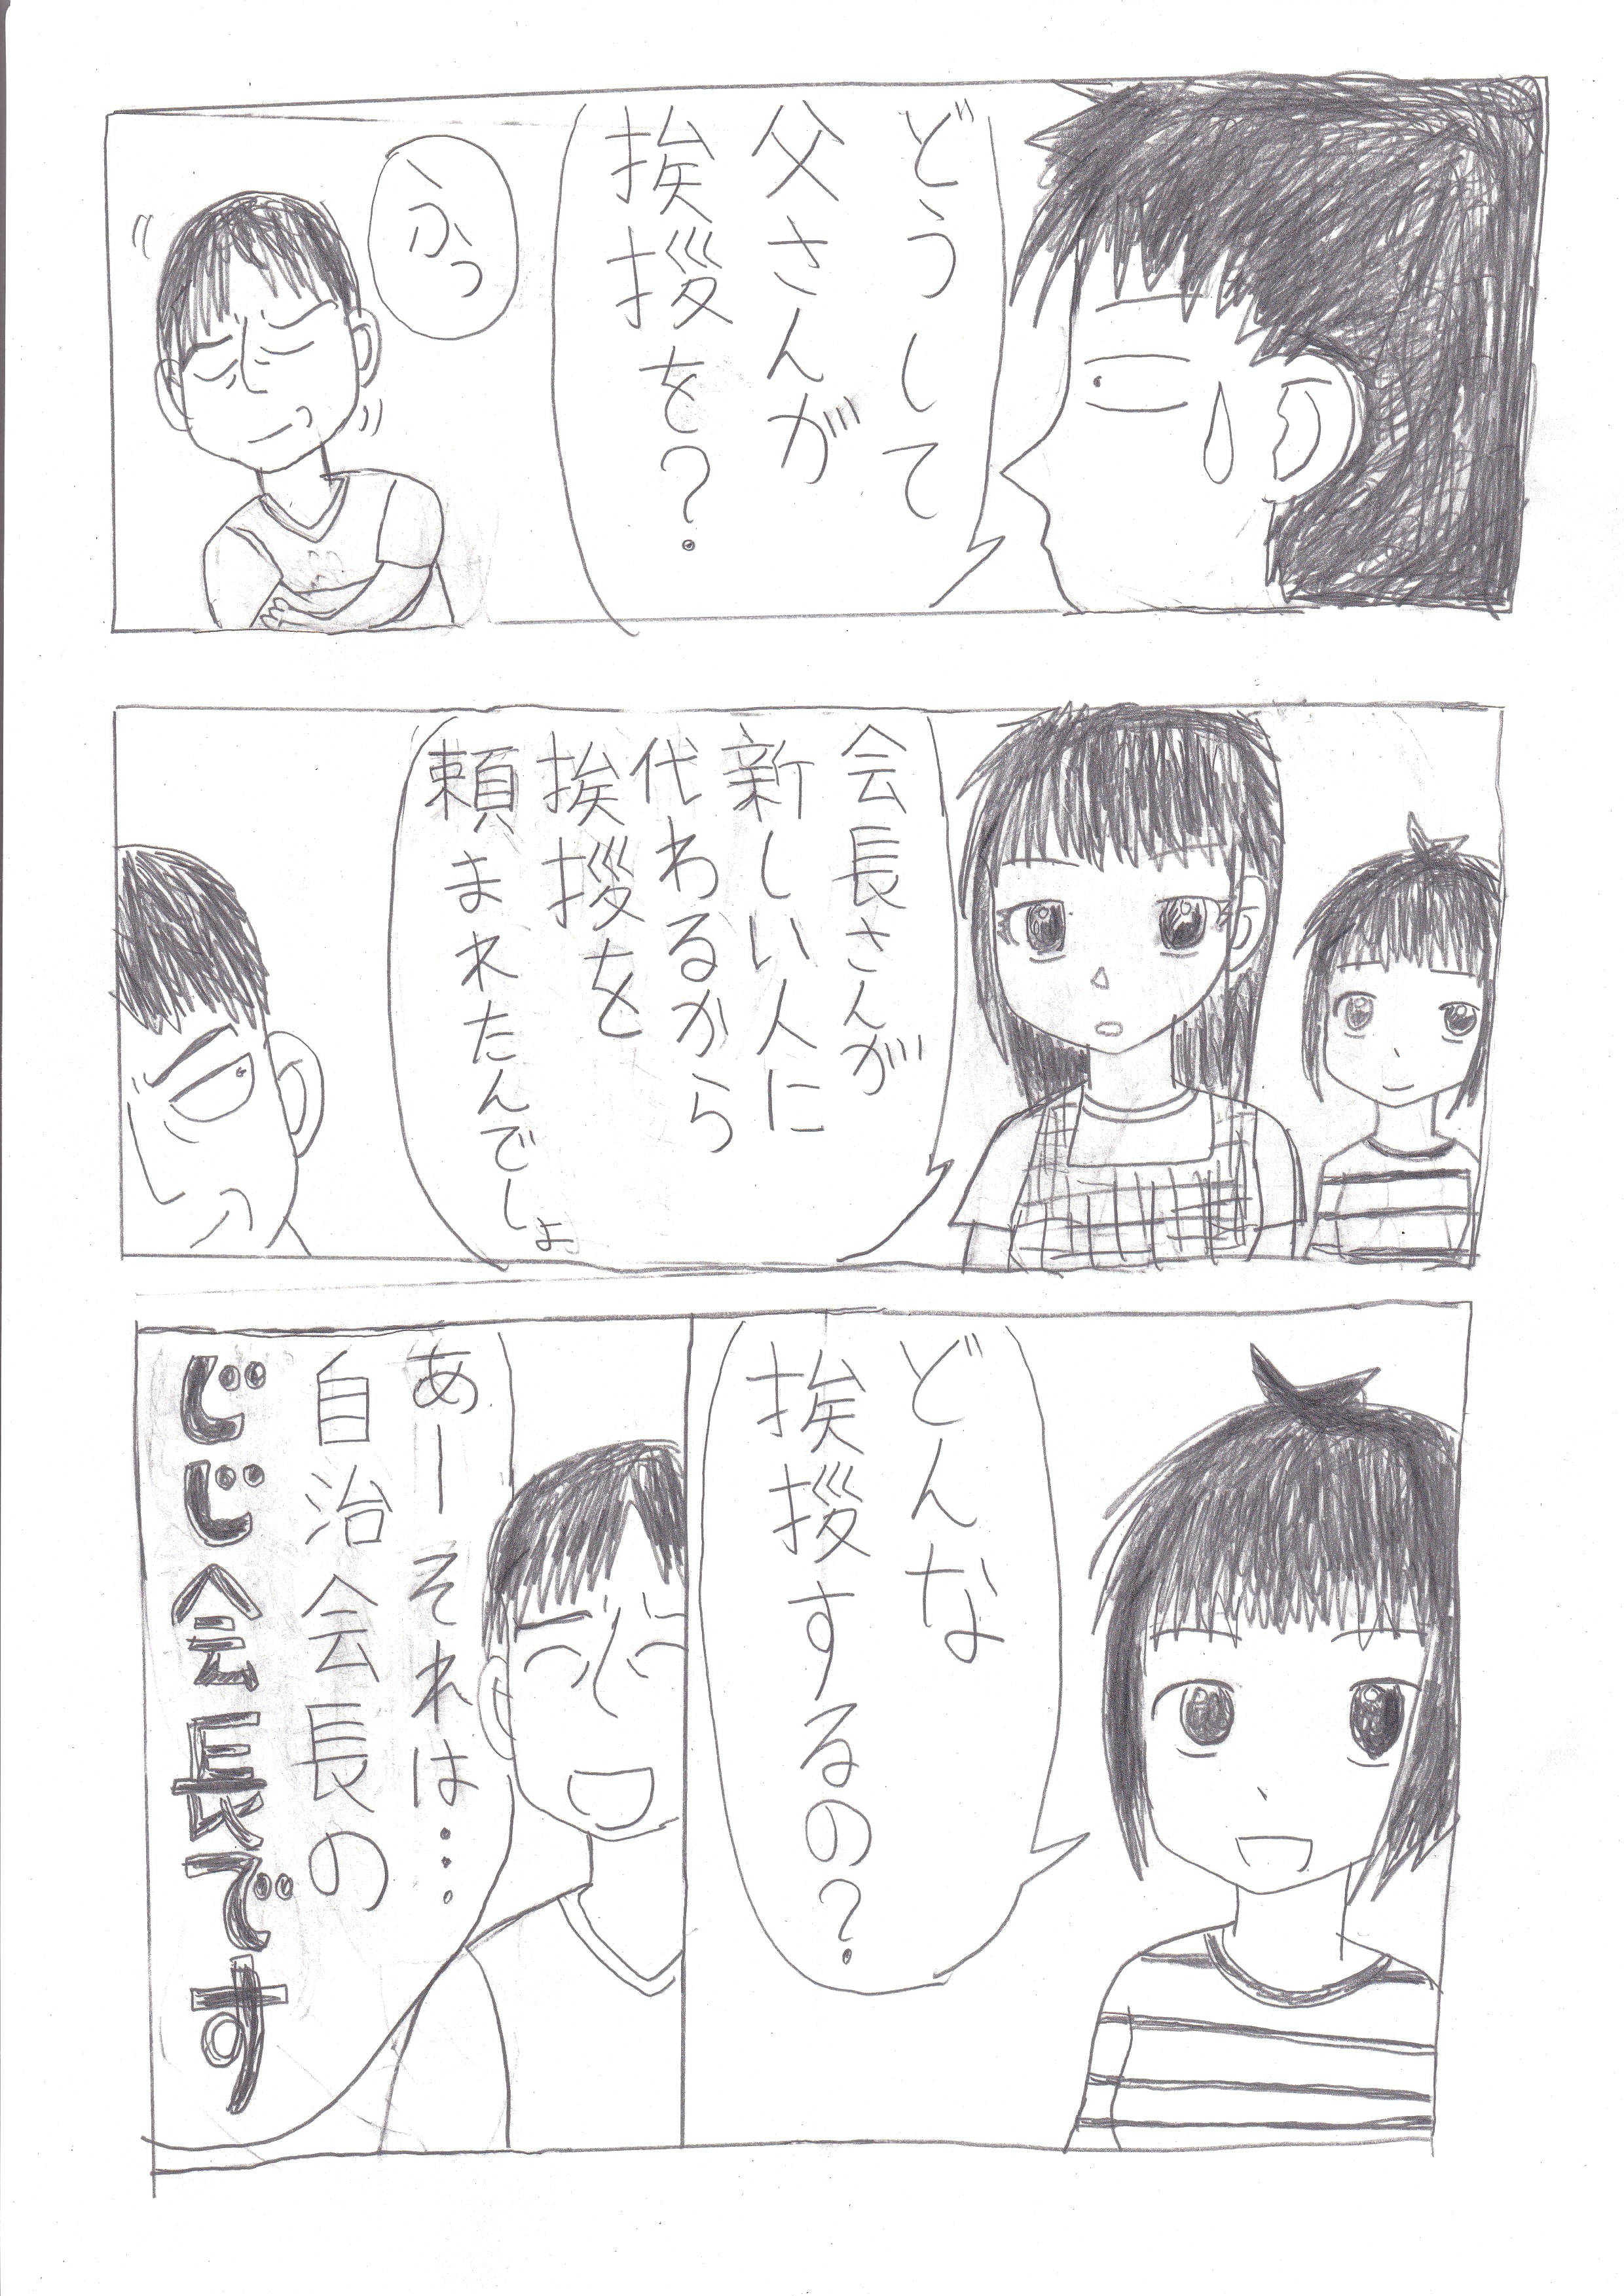 どうして
父さんが
挨拶を?
ふっ
会長さんが
新しい人に
代わるから
挨拶を
頼まれたんでしょ
どんな
挨拶するの?
あーそれは…
自治会長の
じじ会長です